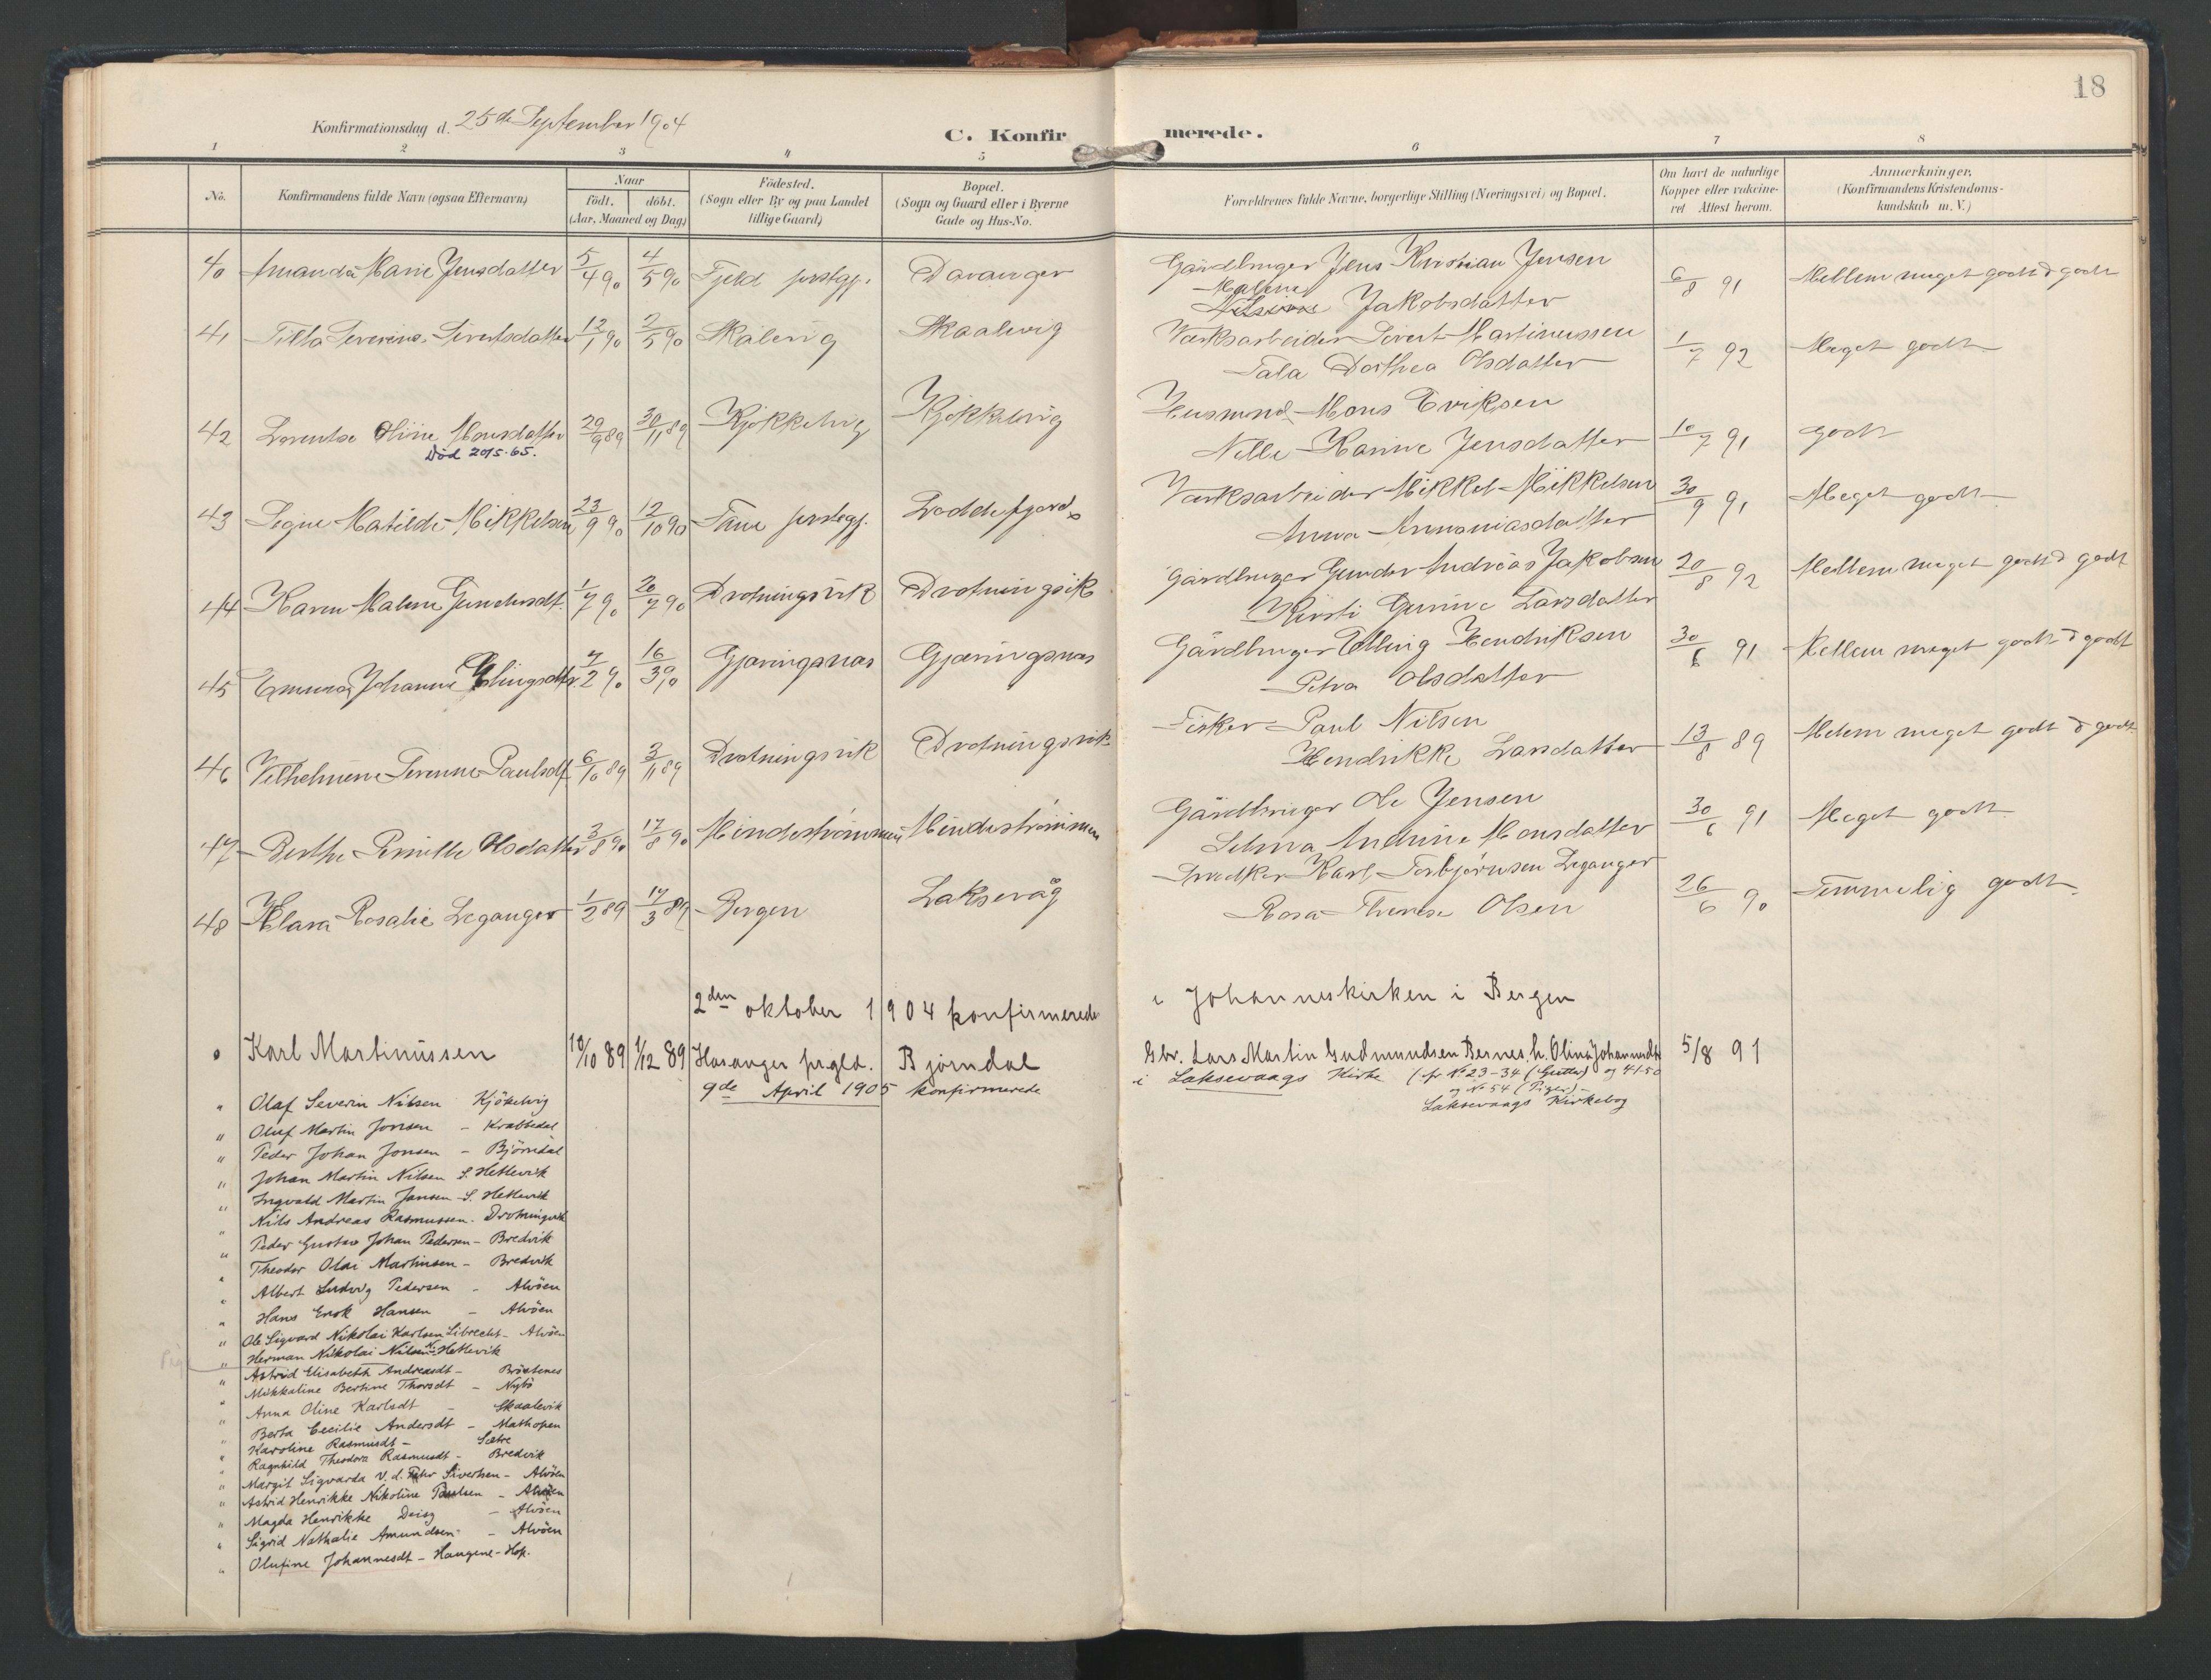 18
Konfirmationsdag d. 25de September 1904
C. Konfir merede.
1 2 3 4 5 6 7 8
No. Konfirmandens fulde Navn (ogsaa Efternavn) Naar födt. döbt. (Aar, Maaned og Dag) Födested. (Sogn eller By og paa Landet tillige Gaard) Bopæl. (Sogn og Gaard eller i Byerne Gade og Hus-No. Forældrenes fulde Navne, borgerlige Stilling (Næringsvei) og Bopæl. Om havt de naturlige Kopper eller vakcineret Attest herom. Anmærkninger. (Konfirmandens Kristendomskundskab m.V.)
40 Amanda Marie Jensdatter 5/4 90 4/5 90 Fjeld prestgj. Davanger Gårdbruger Jens Kristian Jensen 6/8 91 Mellem meget godt & godt
Malene Jakobsdatter
41 Tilla Severine Sivertsdatter 12/1 90 2/5 90 Skålevig Skaalevig Værksarbeider Sivert Martinussen 1/7 92 Meget godt
Tala Dorthea Olsdatter
42 Lorentse Oline Monsdatter 29/9 89 30/11 89 Kjøkkelvig Kjøkkelvig Husmand Mons Eriksen 10/7 91 godt
Død 20/5.65. Nille Karine Jensdatter
43 Signe Matilde Mikkelsen 23/9 90 12/10 90 Fane prestegj. Loddefjord Værksarbeider Mikkel Mikkelsen 30/9 91 Meget godt
Anna Ananiasdatter
44 Karen Malene Gundersdt. 1/7 90 20/7 90 Drotningsvik Drotningsvik Gårdbruger Gunder Andreas Jakobsen 20/8 92 Mellem meget godt & godt
Kirsti Gurine Larsdatter
45 Emma Johanne Ellingsdtr 7/2 90 16/3 90 Gjæringsnæs Gjæringsnæs Gårdbruger Elling Hendriksen 30/6 91 Mellem meget godt & godt
Petra Olsdatter
46 Vilhelmine Severine Paulsdt 6/10 89 3/11 89 Drotningsvik Drotningsvik Fisker Paul Nilsen 13/8 89 Melem meget godt & godt
Hendrikke Larsdatter
47 Berthe Pernille Olsdatter 3/8 90 17/8 90 Mindestrømmen Mindestrømmen Gårdbruger Ole Jensen 30/6 91 Meget godt
Selma Andrine Monsdatter
48 Klara Rosalie Leganger 1/2 89 17/3 89 Bergen Laksevåg Snedker Karl Torbjørnsen Leganger 26/6 90 Temmelig godt
Rosa Therese Olsen
2den oktober 1904 konfirmerede i Johanneskirken i Bergen
Karl Martinussen 10/10 89 1/12 89 Hosanger prgld. Björndal Gbr. Lars Martin Gudmundsen Bernes. h. Olina Johannesdtr 5/8 91
9de April 1905 konfirmerede i Laksevaags Kirke (fr No 23-34 (Gutter) og 41-50
og No 54 (Piger) -
Laksevaags Kirkebog
" Olaf Severin Nilsen Kjökelvig
" Oluf Martin Jonsen - Krabbedal
" Peder Johan Jonsen - Björndal
" Johan Martin Nilsen S. Hetlevik
" Ingvald Martin Jansen - S. Hetlevik
" Nils Andreas Rasmussen. Drotningvik
" Peder Gustav Johan Pedersen - Bredvik
" Theodor Olai Martinsen - Bredvik
" Albert Ludvig Pedersen - Alvöen
" Hans Erik Hansen - Alvöen
" Ole Sigvard Nikolai Karlsen Librecht - Alvöen
" Herman Nikolai Nilsen N. Hetlevik
" Astrid Elisabeth Andreasdt - Bröstenes
" Mikkaline Bertine Thorsdt - Nybö
" Anna Oline Karlsdt - Skaalevik
" Berta Cecilie Andersdt - Mathopen
" Karoline Rasmusdt - Sætre
" Ragnhild Theodora Rasmusdt - Bredvik
" Margit Sigvarda v. d. Fehr Sivertsen - Alvöen
" Astrid Henrikke Nikoline Paulsen - Alvöen
" Magda Henrikke Deisz - Alvöen
" Sigrid Nathalie Amundsen - Alvöen
" Olufine Johannesdt - Haugene - Hop.